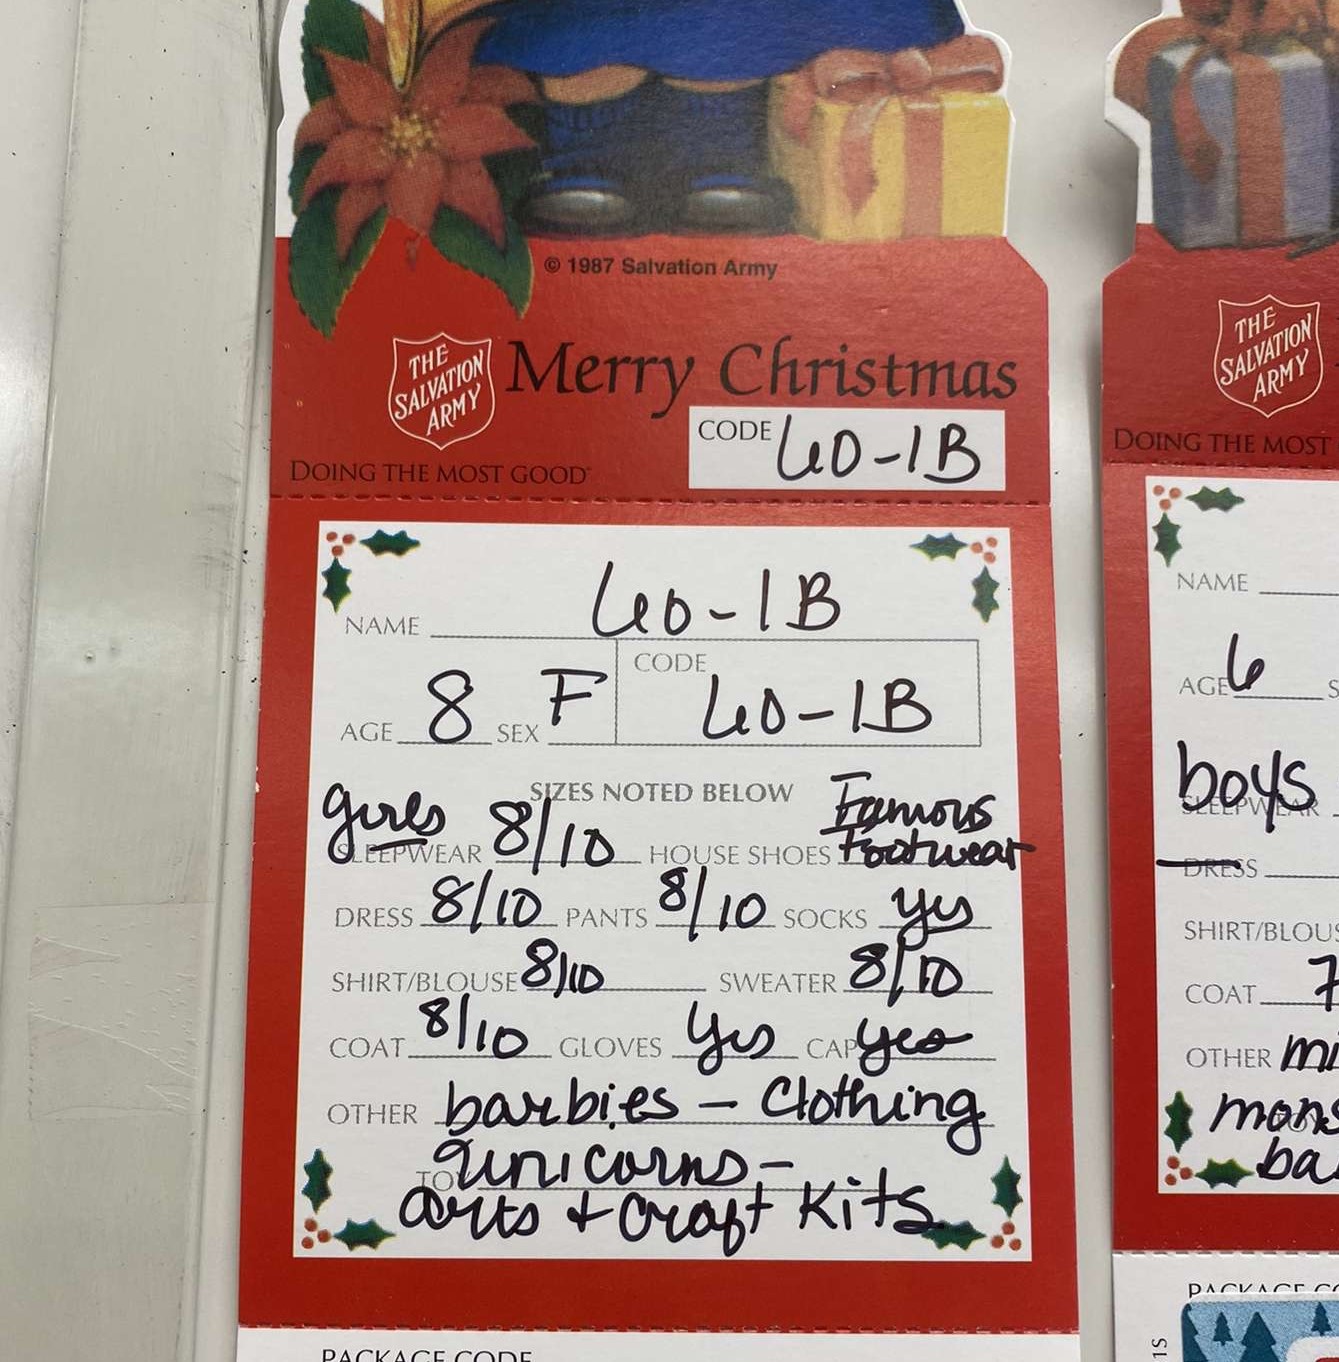 © 1987 Salvation Army
THE
SALVATION
ARMY
Merry Christmas
DOING THE MOST GOOD
CODE 60-1B
NAME 60-1B
AGE 8 SEX F CODE 60-1B
SIZES NOTED BELOW
girls
SLEEPWEAR 8/10 HOUSE SHOES Famous Footwear
DRESS 8/10 PANTS 8/10 SOCKS yes
SHIRT/BLOUSE 8/10 SWEATER 8/10
COAT 8/10 GLOVES yes CAP yes
OTHER barbies - Clothing
TO unicorns -
arts + craft kits
PACKAGE CODE
THE
SALVATION
ARMY
DOING THE MOST
NAME
AGE 6 S
boys
SLEEPWEAR
DRESS
SHIRT/BLOUS
COAT 7
OTHER
mons
ba
PACKAGE CO